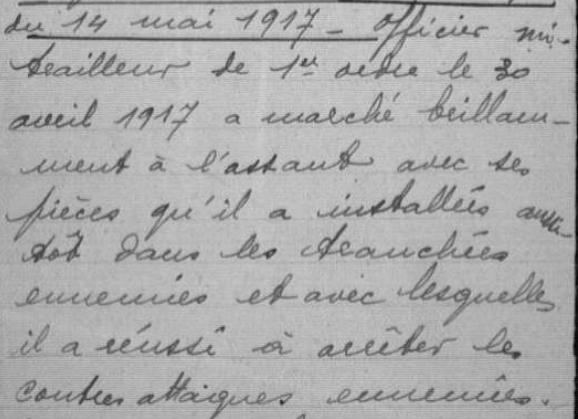 du 14 mai 1917 - Officier mi-
trailleur de 1er ordre le 30
avril 1917 a marché brillam-
ment à l'assaut avec ses
pièces qu'il a installées aussi-
tôt dans les tranchées
ennemies et avec lesquelles
il a réussi à arrêter les
contres attaques ennemies.